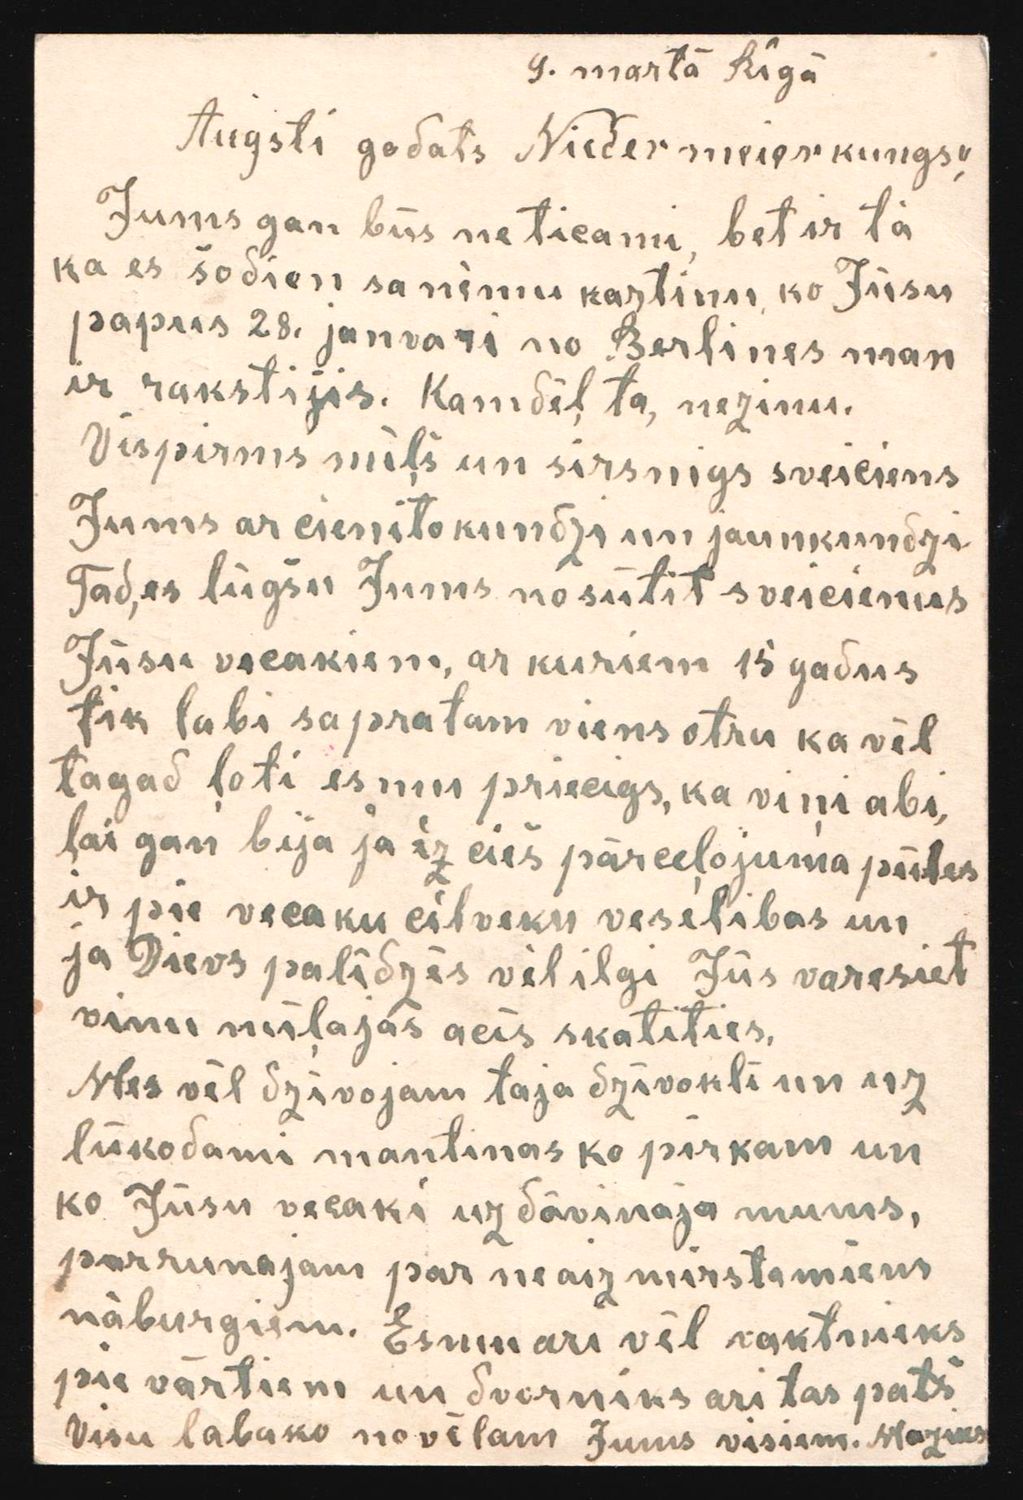 9. martā Rīgā
Augsti godats Niedermeier kungs!
Jums gan būs neticami, bet ir tā
ka es šodien sanēmu kartinu, ko Jūsu
papus 28. janvari no Berlines man
ir rakstijis. Kamdēļ ta, nezinu.
Vispirms mīļš un sirsnigs sveiciens
Jums ar cienito kundzi un jaunkundzi
Tad, es lūgšu Jums nosūtit sveicienus
Jūsu vecakiem, ar kuriem 15 gadus
tik labi sapratam viens otru ka vēl
tagad ļoti esmu priecigs, ka viņi abi,
lai gan bija ja iz cieš pārceļojuma pūles
ir pie vecaku cilveku veselibas un
ja Dievs palīdzēs vēl ilgi Jūs varesiet
vinu mīļajās acīs skatīties.
Mes vēl dzīvojam taja dzīvoklī un uz
lūkodami mantinas ko pirkam un
ko Jūsu vecaki uzdāvinaja mums,
parrunajam par neaizmirstamiens
nāburgiem. Esmu ari vēl vaktnieks
pie vārtiem un dvorniks ari tas pats
Visu labako novēlam Jums visiem.